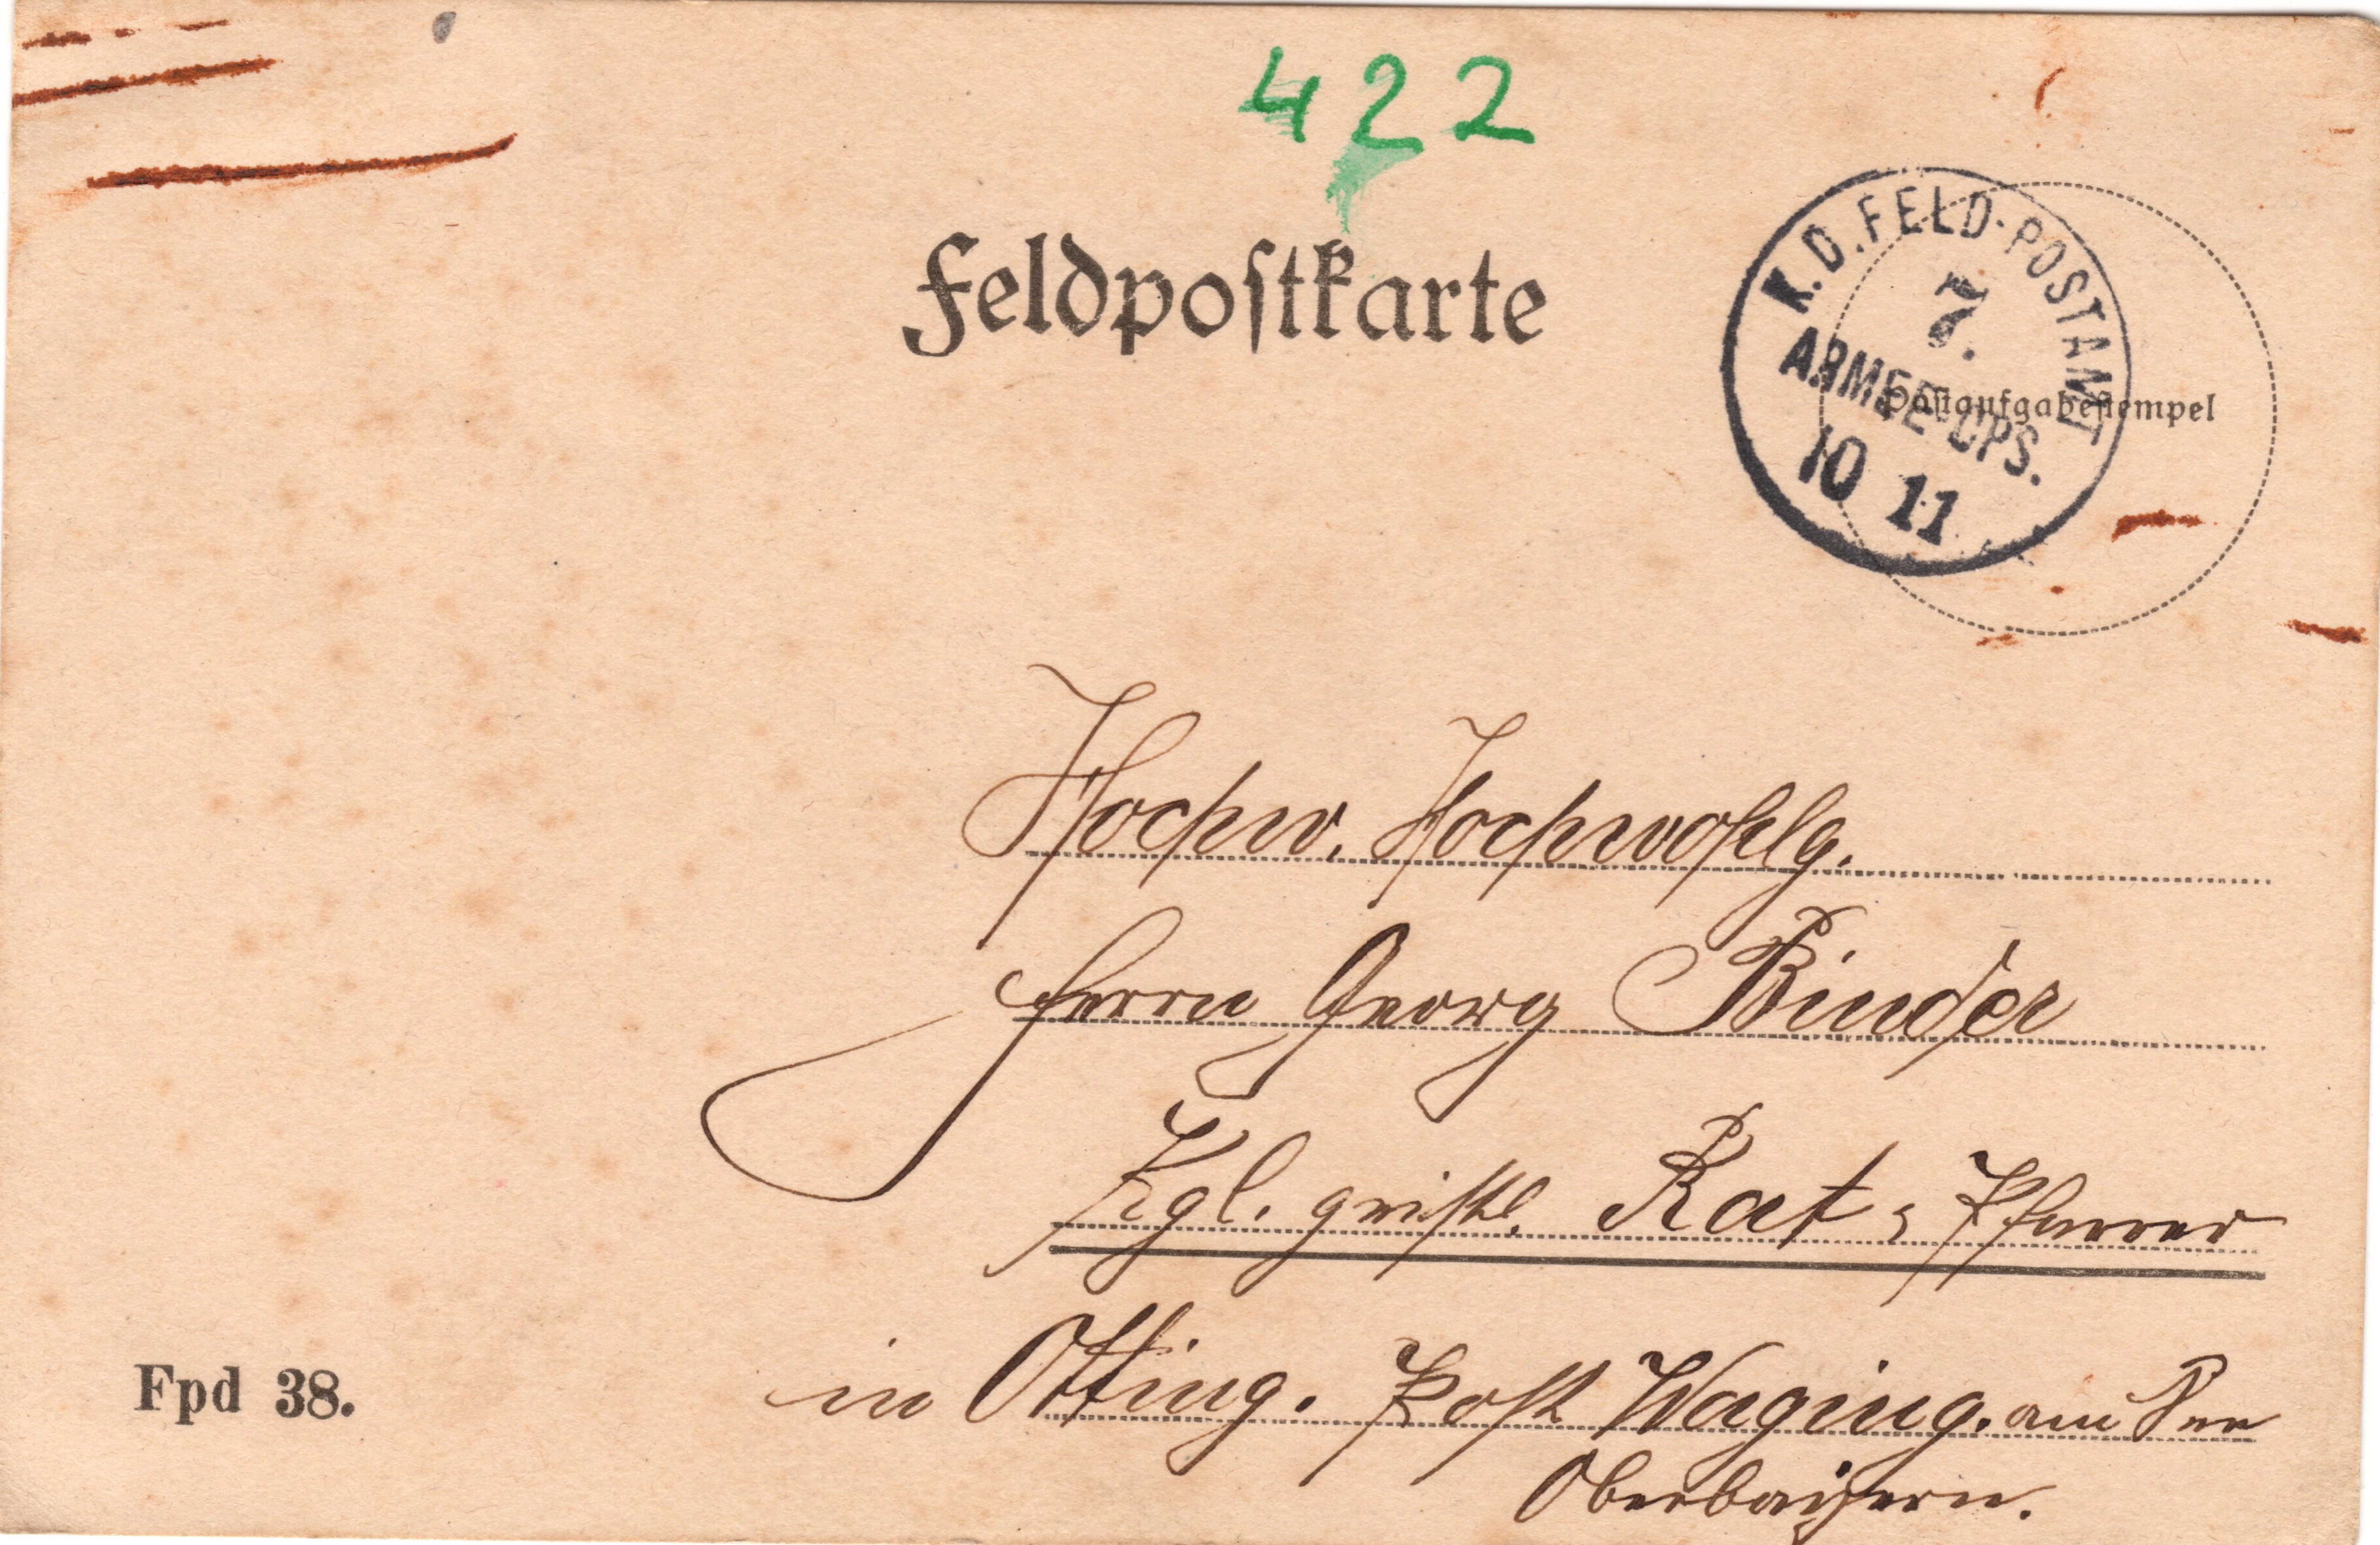 422
Feldpostkarte
K.D. FELD-POSTAMT
7.
ARMEE CPS.
10 11
Postaufgabestempel
Hochw. Hochwohlg.
Herrn Georg Binder
Kgl. geistl. Rat, Pfarrer
in Otting. Post Waging. am See
Oberbayern.
Fpd 38.